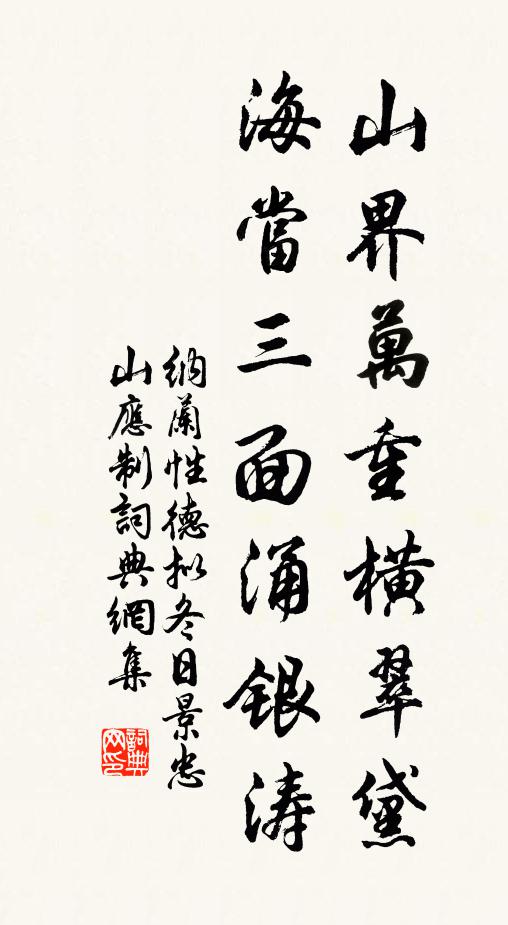 山界萬重橫翠黛
海當三面涌銀濤
納蘭性德拟冬日景忠
山應制詞典網集
詞典
网印